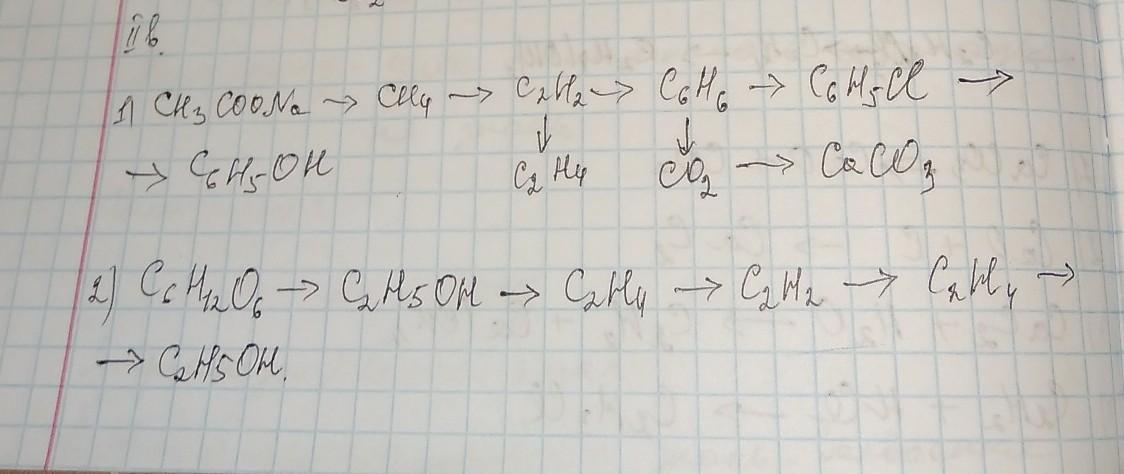 II в.
1) CH3COONa → CH4 → C2H2 → C6H6 → C6H5Cl →
↓ ↓
→ C6H5OH C2H4 CO2 → CaCO3
2) C6H12O6 → C2H5OH → C2H4 → C2H2 → C2H4 →
→ C2H5OH.